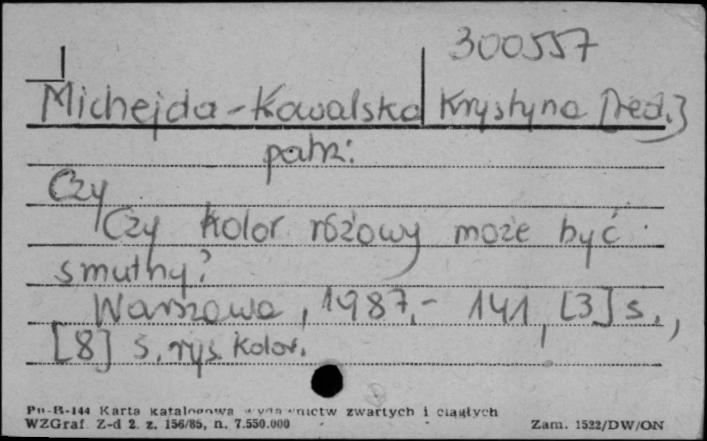 300557
Michejda-Kowalska Krystyna [red.]
patrz:
Czy
Czy kolor różowy może być
smutny?
Warszawa, 1987.- 141, [3] s.,
[8] s. rys. kolor.
Pu-B-144 Karta katalogowa wydawnictw zwartych i ciągłych
WZGraf. Z-d 2. z. 156/85, n. 7.550.000 Zam. 1522/DW/ON